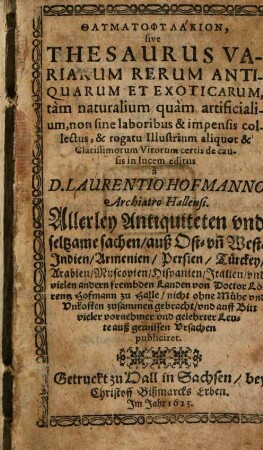 ΘΑΥΜΑΤΟΦΥΛΑΚΙΟΝ,
sive
THESAURUS VA-
RIARUM RERUM ANTI-
QUARUM ET EXOTICARUM,
tàm naturalium quàm artificiali-
um, non sine laboribus & impensis col-
lectus, & rogatu Illustrium aliquot &
Clarissimorum Virorum certis de cau-
sis in lucem editus
à
D. LAURENTIO HOFMANNO
Archiatro Hallensi.
Allerley Antiquiteten vnd
seltzame sachen/ auß Ost- vñ West
Indien/ Armenien/ Persien/ Türckey/
Arabien/ Muscovien/ Hispanien/ Italien/ vnd
vielen andern frembden Landen von Doctor Lo-
rentz Hofmann zu Halle/ nicht ohne Mühe vnd
Vnkosten zusammen gebracht/ vnd auff Bitt
vieler vornehmer vnd gelehrter Leu-
te auß gewissen Vrsachen
publiciret.
Getruckt zu Hall in Sachsen/ bey
Christoff Bißmarcks Erben.
Im Jahr 1625.